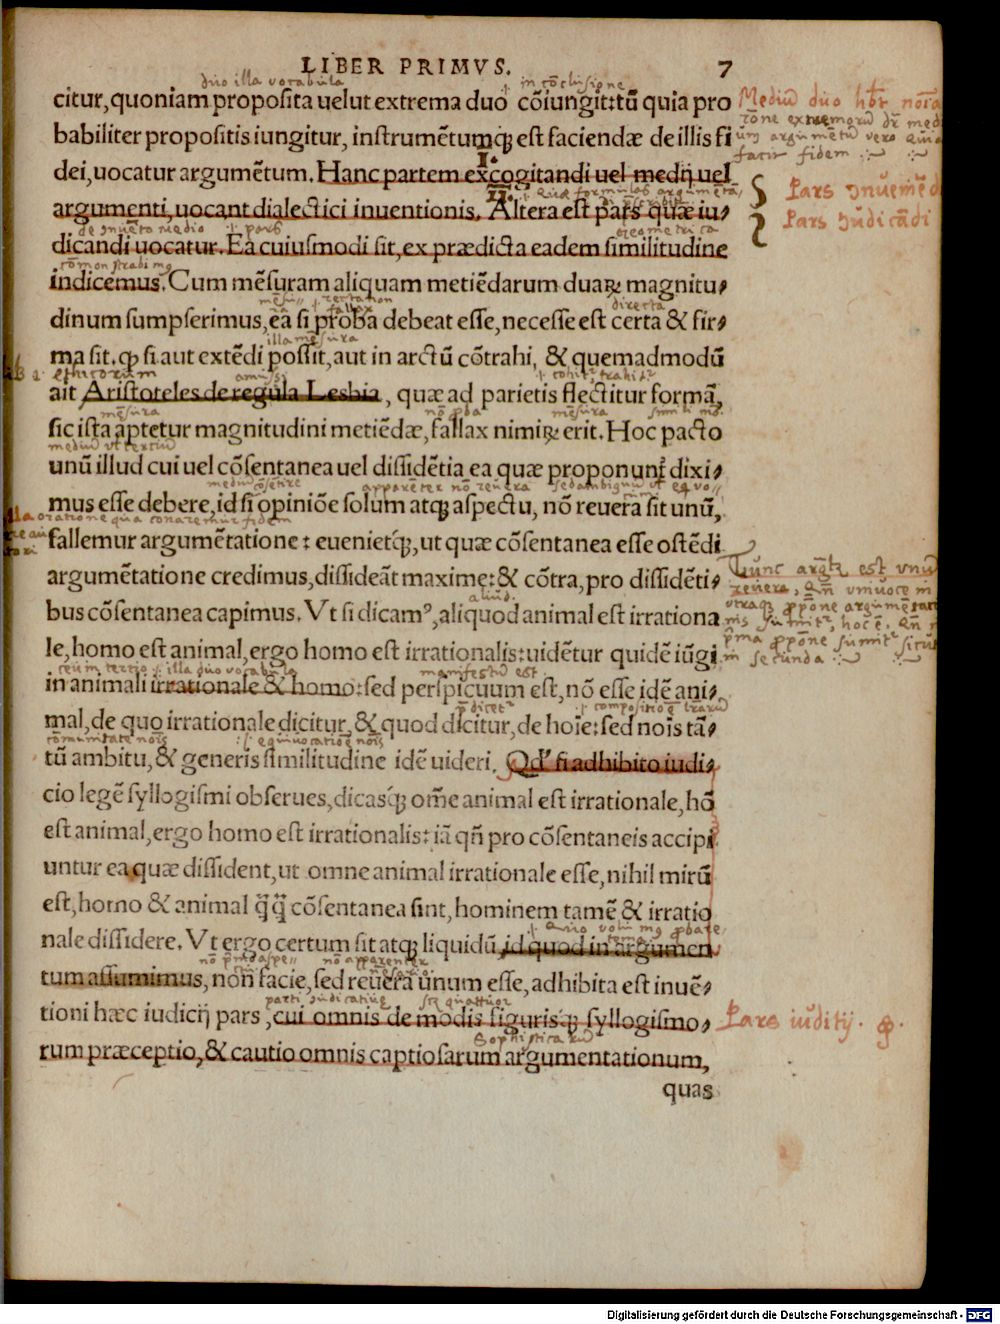 LIBER PRIMVS. 7
duo illa vocabula
in cōclusione
citur, quoniam proposita uelut extrema duo cōiungit: tū quia pro
babiliter propositis iungitur, instrumētumq́ꝫ est faciendæ de illis fi
I.
dei, uocatur argumētum. Hanc partem excogitandi uel medij uel
II.
argumenti, uocant dialectici inuentionis. Altera est pars quæ iu⸗
de inuēto medio
geometrica
dicandi uocatur. Ea cuiusmodi sit, ex prædicta eadem similitudine
indicemus. Cum mēsuram aliquam metiēdarum duaꝝ magnitu⸗
directa
dinum sumpserimus, ea si proba debeat esse, necesse est certa & fir⸗
illa mesura
ma sit. qꝫ si aut extēdi possit, aut in arctū cōtrahi, & quemadmodū
ethicorum
ait Aristoteles de regula Lesbia, quæ ad parietis flectitur formā,
mēsura
mēsura
sic ista aptetur magnitudini metiēdæ, fallax nimiꝝ erit. Hoc pacto
unū illud cui uel cōsentanea uel dissidētia ea quæ proponunt̃ dixi⸗
apparēter nō reuera
mus esse debere, id si opiniōe solum atqꝫ aspectu, nō reuera sit unū,
oratione qua conaremur fidem
fallemur argumētatione: euenietq́ꝫ, ut quæ cōsentanea esse ostēdi
argumētatione credimus, dissideāt maxime: & cōtra, pro dissidēti⸗
aliud.
bus cōsentanea capimus. Vt si dicamꝰ, aliquod animal est irrationa
le, homo est animal, ergo homo est irrationalis: uidētur quidē iūgi
illa duo vocabula
manifestū est
in animali irrationale & homo: sed perspicuum est, nō esse idē ani⸗
mal, de quo irrationale dicitur, & quod dicitur, de hoīe: sed noīs tā⸗
tū ambitu, & generis similitudine idē uideri. Qd' si adhibito iudi⸗
cio legē syllogismi obserues, dicasq́ꝫ om̄e animal est irrationale, hō
est animal, ergo homo est irrationalis: iā qn̄ pro cōsentaneis accipi
untur ea quæ dissident, ut omne animal irrationale esse, nihil mirū
est, homo & animal q̄q̄ cōsentanea sint, hominem tamē & irratio
nale dissidere. Vt ergo certum sit atqꝫ liquidū, id quod in argumen
nō apparenter
tum assumimus, non facie, sed reuera unum esse, adhibita est inuē⸗
tioni hæc iudicij pars, cui omnis de modis figurisqꝫ syllogismo⸗
Sophisticarū
rum præceptio, & cautio omnis captiosarum argumentationum,
quas
Pars Inuēniēd
Pars Iudicādi
Tunc argtꝫ est unū
in secunda
Pars iuditij.
Digitalisierung gefördert durch die Deutsche Forschungsgemeinschaft - DFG